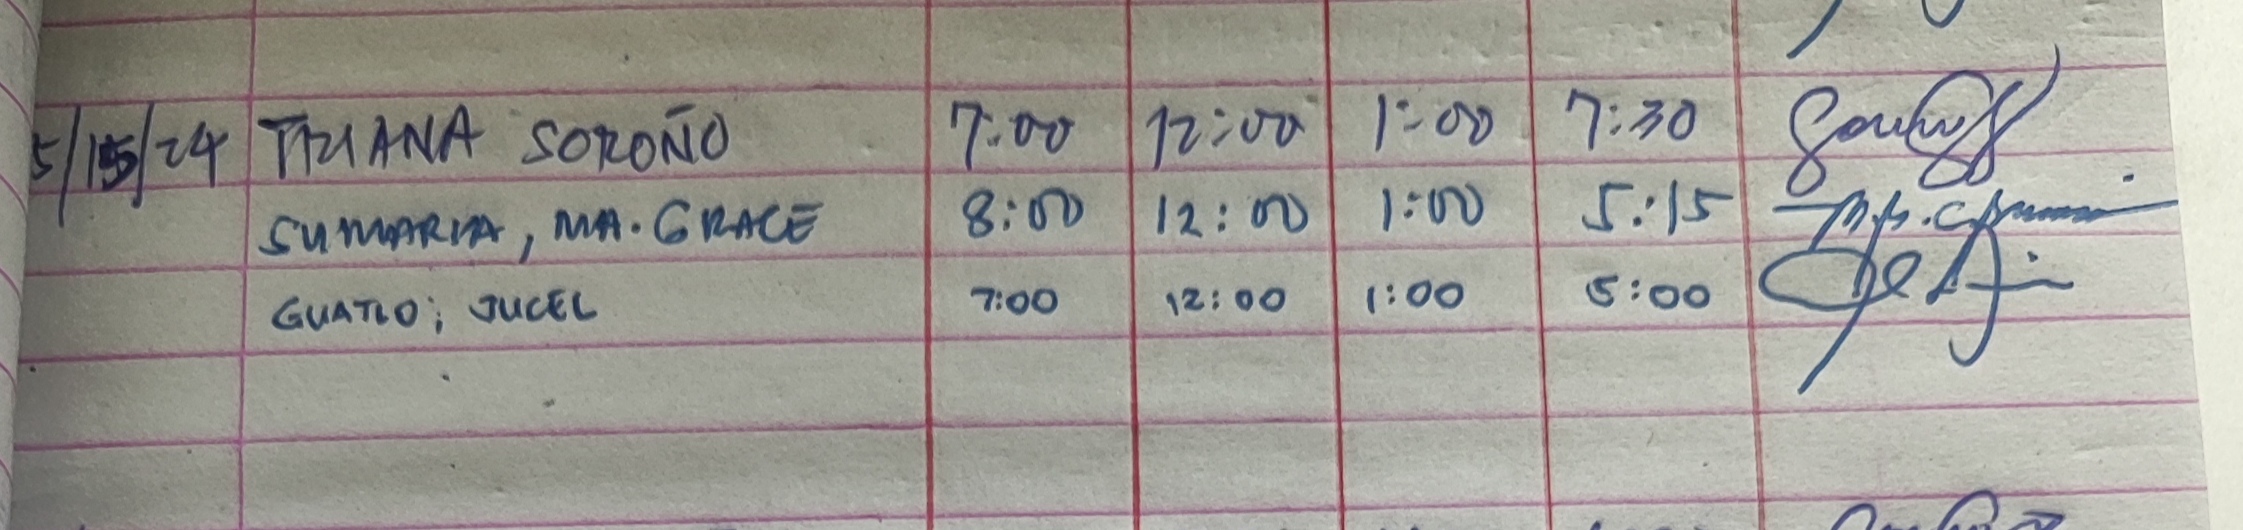 5/15/24 TIZIANA SOROÑO 7:00 12:00 1:00 7:30
SUMARIA, MA. GRACE 8:00 12:00 1:00 5:15
GUATLO, JUCEL 7:00 12:00 1:00 5:00